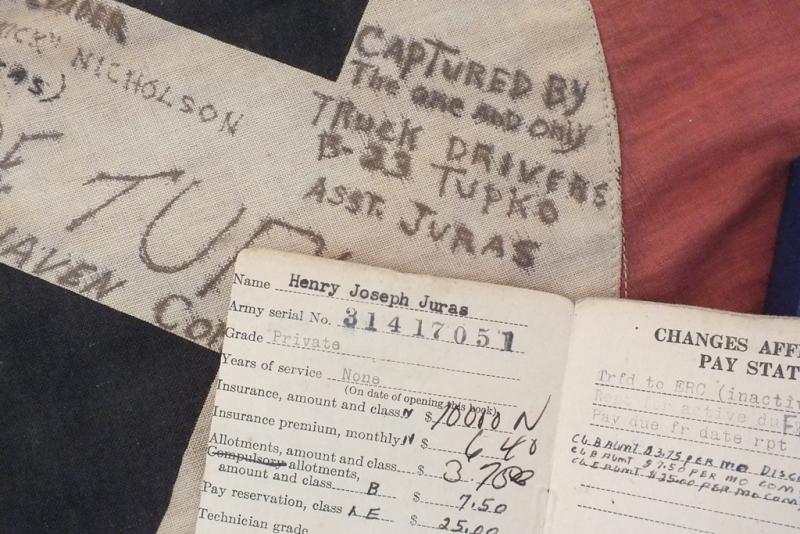 NICK" NICHOLSON
CAPTURED BY
The one AND ONLY
TRUCK DRIVERS
B-23 TUPKO
ASST. JURAS
HAVEN
Name Henry Joseph Juras
Army serial No. 31417051
Grade Private
Years of service None
(On date of opening this book)
Insurance, amount and class N $ 10000 N
Insurance premium, monthly N $ 6 40
Allotments, amount and class $ 3.75
Compulsory allotments,
amount and class B $ 7.50
Pay reservation, class A E $ 25.00
Technician grade
CHANGES AFF
PAY STAT
Trfd to ERC (inacti
Rept for active du
Pay due fr date rpt
CL B AUMT $3.75 PER MO DISC
CL B AUMT $7.50 PER MO COM
CL E AUMT $25.00 PER MO COM